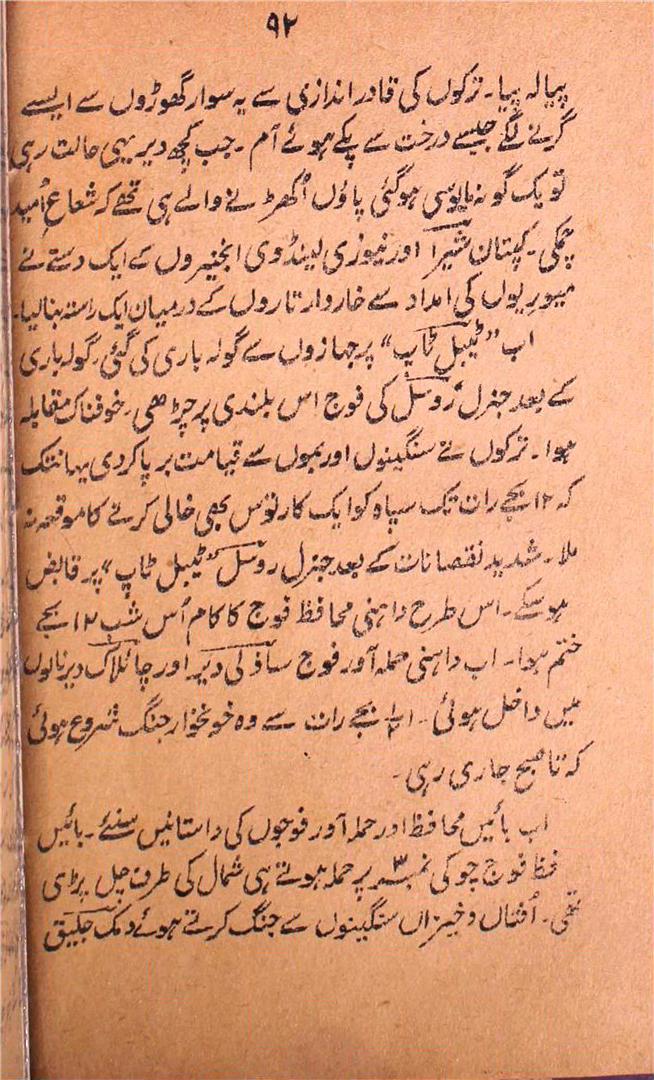 ۹۲
پیالہ پیا۔ ترکوں کی قادر اندازی سے یہ سوار گھوڑوں سے ایسے
گرنے لگے جیسے درخت سے پکے ہوئے آم ۔ جب کچھ دیر یہی حالت رہی
تو یک گونہ مایوسی ہوگئی پاؤں اُکھڑنے والے ہی تھے کہ شعاع اُمید
چمکی۔ کپتان شیرا اور نیوزی لینڈ وی انجنیروں کے ایک دستے نے
میوریوں کی امداد سے خاردار تاروں کے درمیان ایک راستہ بنالیا۔
اب ”ٹیبل ٹاپ“ پر جہازوں سے گولہ باری کی گئی۔ گولہ باری
کے بعد جنرل رُوسل کی فوج اس بلندی پر چڑھی۔ خوفناک مقابلہ
ہوا ۔ ترکوں نے سنگینوں اور بموں سے قیامت برپا کردی یہانتک
کہ ۱۲ بجے رات تک سپاہ کو ایک کارتوس بھی خالی کرنے کا موقعہ نہ
ملا ۔ شدید نقصانات کے بعد جنرل روسل ”ٹیبل ٹاپ“ پر قابض
ہوسکے ۔ اس طرح داہنی محافظ فوج کا کام اُس شب ۱۲ بجے
ختم ہوا ۔ اب داہنی حملہ آور فوج سازلی دیر اور چائلاک دیر نالوں
میں داخل ہوئی ۔ بجے رات سے وہ خونخوار جنگ شروع ہوئی
کہ تا صبح جاری رہی ۔
اب بائیں محافظ اور حملہ آور فوجوں کی داستانیں سنئے ۔ بائیں
فظ فوج چوکی نمبر ۳ پر حملہ ہوتے ہی شمال کی طرف چل پڑی
تھی ۔ اُفتاں و خیزاں سنگینوں سے جنگ کرتے ہوئے دمک جلیق